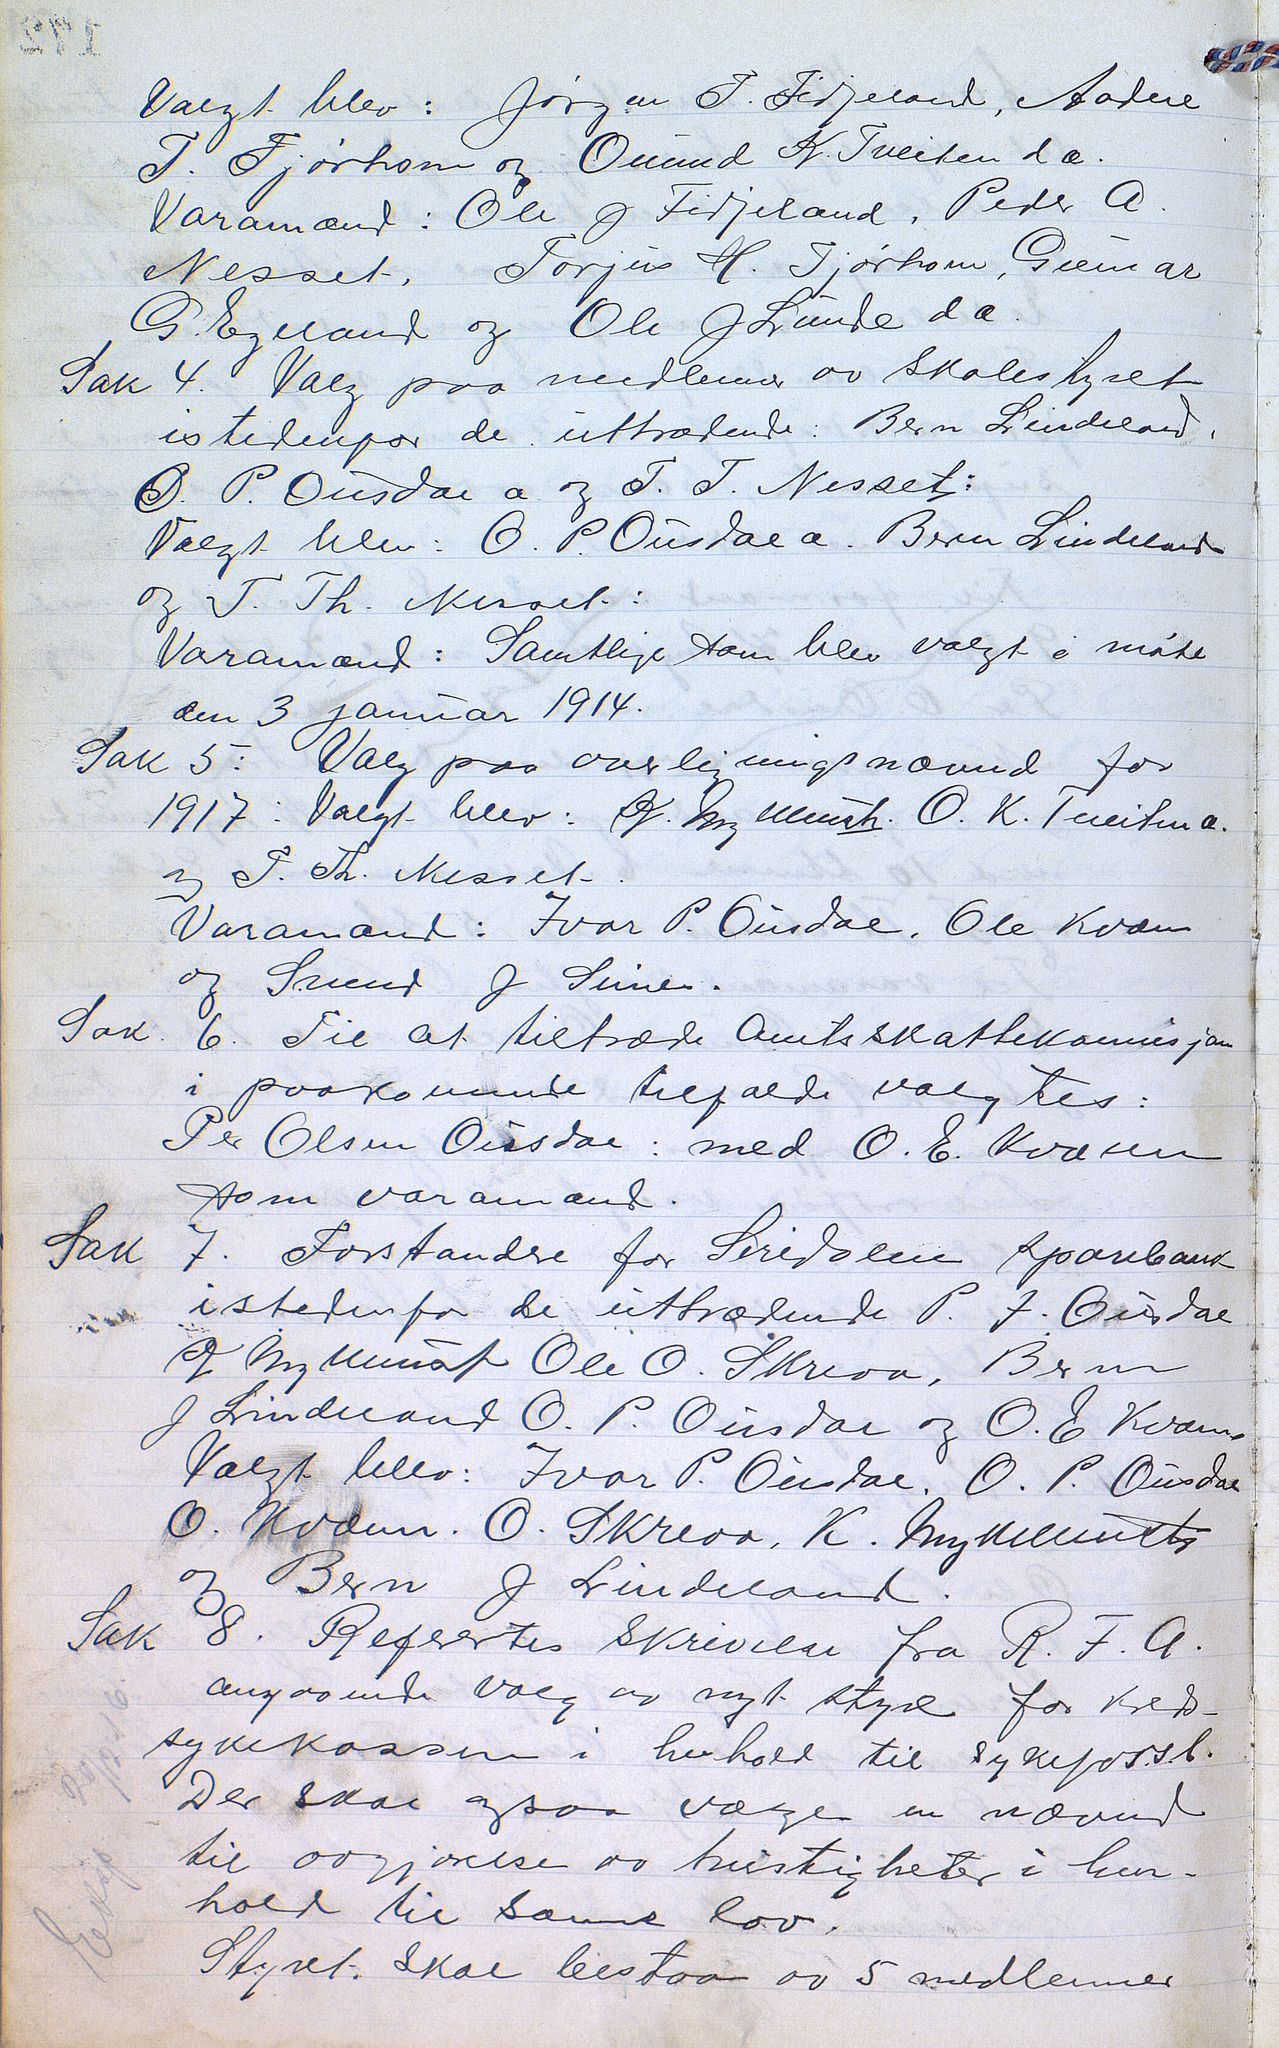 Valgt blev: Jørgen T. Fidjeland, Aadne
T. Tjørhom og Omund K. Tveiten d.æ.
Varamænd: Ole J Fidjeland, Peder A.
Nesset, Torjus H. Tjørhom, Gunnar
G. Egeland og Ole J Lunde d.æ.
Sak 4. Valg paa medlemer av skolestyret
istedenfor de uttrædende: Bern Lindeland,
O. P. Ousdal a og T. T. Nesset:
Valgt blev: O. P. Ousdal a. Bern Lindeland
og T. Th. Nesset:
Varamænd: Samtlige som blev valgt i møte
den 3 januar 1914.
Sak 5: Valg paa overligningsnævnd for
1917: Valgt blev: K. Myklust. O. K. Tveiten a.
og T. Th. Nesset.
Varamænd: Ivar P. Ousdal, Ole Kvæven
og Svend J Sines.
Sak 6. Til at tiltræde Amtsskattekommisjon
i paakomende tilfælde valgtes:
Per Olsen Ousdal: med O. E. Kvæven
som varamand.
Sak 7. Forstandere for Siredalen sparebank
istedenfor de uttrædende P. J. Ousdal
K Myklust Ole O. Skreaa, Bern
J Lindeland O. P. Ousdal og O. E Kvæven
Valgt blev: Ivar P. Ousdal, O. P. Ousdal
O. Kvæven. O. Skreaa, K. Myklust
og Bern J Lindeland.
Sak 8. Refertes skrivelse fra R. F. A.
angaaende valg av nyt styre for kreds-
sykekassen i henhold til sykefors.l.
Der skal ogsaa vælge en nævnd
til avgjørelse av tvistigheter i hen-
hold til samme lov.
Styret skal bestaa av 5 medlemmer